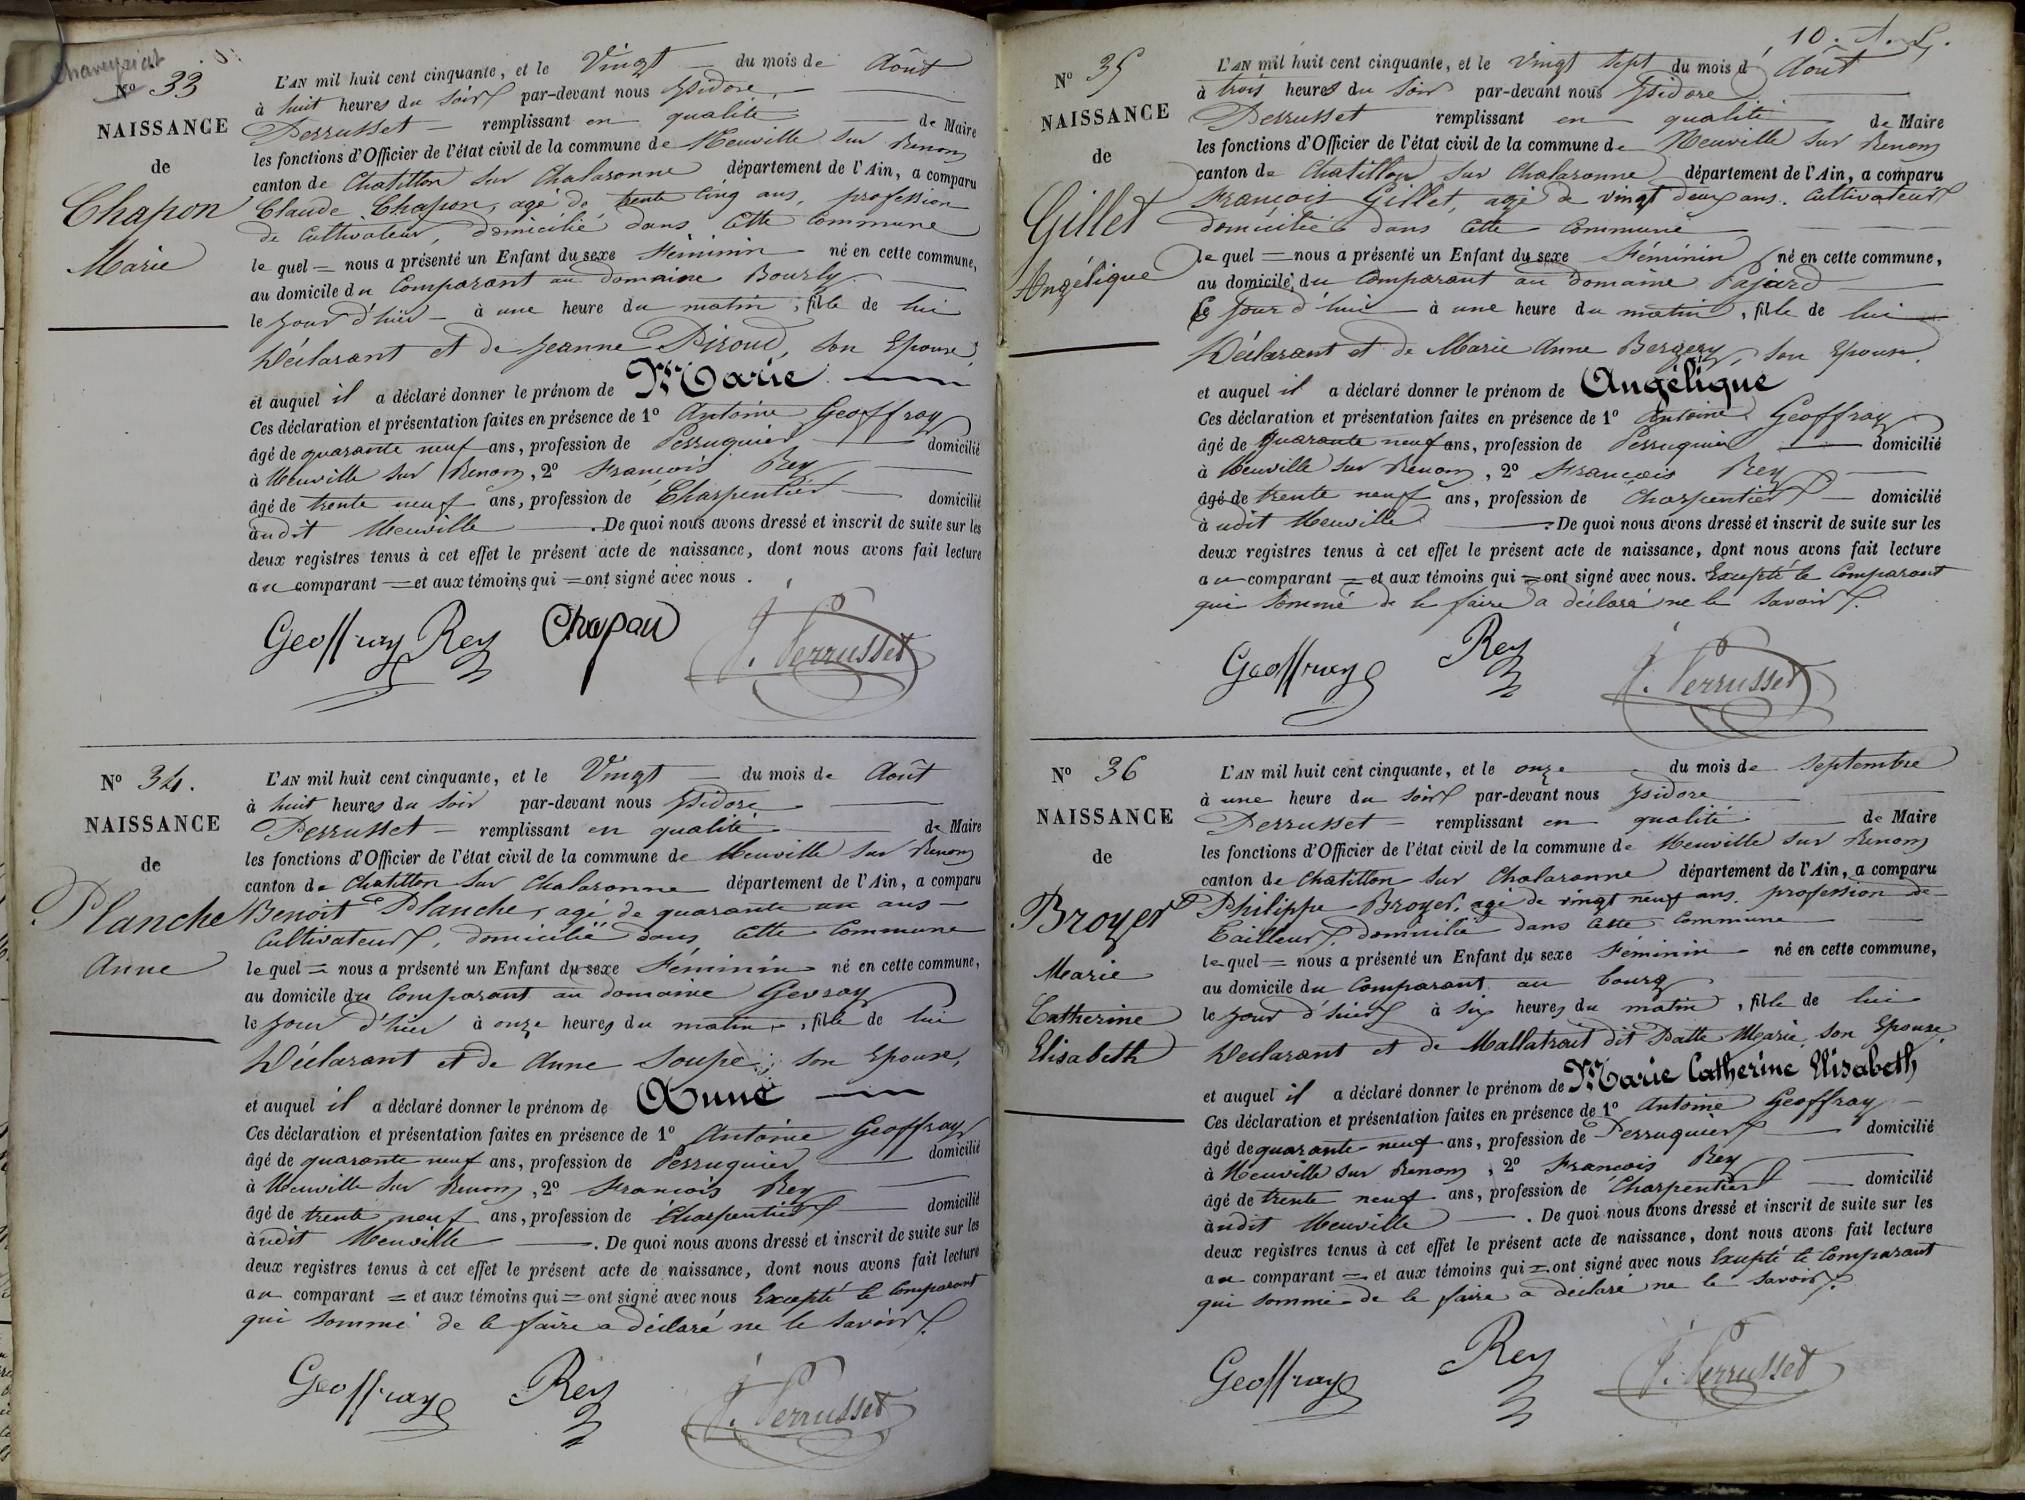 Chaveyriat
N° 33
NAISSANCE
de
Chapon
Marie
L'AN mil huit cent cinquante, et le Vingt du mois de Août
à huit heures du soir par-devant nous Isidore
Perrusset remplissant en qualité de Maire
les fonctions d'Officier de l'état civil de la commune de Neuville sur Renom
canton de Chatillon sur Chalaronne département de l'Ain, a comparu
Claude Chapon, agé de trente cinq ans, profession
de Cultivateur, domicilié dans Cette Commune
le quel = nous a présenté un Enfant du sexe Féminin né en cette commune,
au domicile du Comparant au domaine Bourly
le jour d'hier à une heure du matin, fille de lui
Déclarant et de Jeanne Piroud, son Epouse,
et auquel il a déclaré donner le prénom de Marie
Ces déclaration et présentation faites en présence de 1° Antoine Geoffray
âgé de quarante neuf ans, profession de Perruquier domicilié
à Neuville sur Renom, 2° François Rey
âgé de trente neuf ans, profession de Charpentier domicilié
àudit Neuville. De quoi nous avons dressé et inscrit de suite sur les
deux registres tenus à cet effet le présent acte de naissance, dont nous avons fait lecture
au comparant = et aux témoins qui = ont signé avec nous.
Geoffray Rey Chapon J. Perrusset
N° 34.
NAISSANCE
de
Planche
Anne
L'AN mil huit cent cinquante, et le Vingt du mois de Août
à huit heures du soir par-devant nous Isidore
Perrusset remplissant en qualité de Maire
les fonctions d'Officier de l'état civil de la commune de Neuville sur Renom
canton de Chatillon sur Chalaronne département de l'Ain, a comparu
Benoit Planche, agé de quarante un ans
Cultivateur, domicilié dans Cette Commune
le quel = nous a présenté un Enfant du sexe Féminin né en cette commune,
au domicile du Comparant au domaine Gevray
le jour d'hier à onze heures du matin, fille de lui
Déclarant et de Anne Soupe, son Epouse,
et auquel il a déclaré donner le prénom de Anne
Ces déclaration et présentation faites en présence de 1° Antoine Geoffray
âgé de quarante neuf ans, profession de Perruquier domicilié
à Neuville sur Renom, 2° François Rey
âgé de trente neuf ans, profession de Charpentier domicilié
àudit Neuville. De quoi nous avons dressé et inscrit de suite sur les
deux registres tenus à cet effet le présent acte de naissance, dont nous avons fait lecture
au comparant = et aux témoins qui = ont signé avec nous Excepté le Comparant
qui sommé de le faire a déclaré ne le savoir.
Geoffray Rey J. Perrusset
10.
N° 35
NAISSANCE
de
Gillet
Angélique
L'AN mil huit cent cinquante, et le Vingt sept du mois d'Août
à trois heures du soir par-devant nous Isidore
Perrusset remplissant en qualité de Maire
les fonctions d'Officier de l'état civil de la commune de Neuville sur Renom
canton de Chatillon sur Chalaronne département de l'Ain, a comparu
François Gillet, agé de vingt deux ans. Cultivateur
domicilié dans Cette Commune
le quel = nous a présenté un Enfant du sexe Féminin né en cette commune,
au domicile du Comparant au domaine Pajard
le Jour d'hui à une heure du matin, fille de lui
Déclarant et de Marie Anne Bergery, son Epouse.
et auquel il a déclaré donner le prénom de Angélique
Ces déclaration et présentation faites en présence de 1° Antoine Geoffray
âgé de quarante neuf ans, profession de Perruquier domicilié
à Neuville sur Renom, 2° François Rey
âgé de trente neuf ans, profession de Charpentier domicilié
à udit Neuville. De quoi nous avons dressé et inscrit de suite sur les
deux registres tenus à cet effet le présent acte de naissance, dont nous avons fait lecture
au comparant = et aux témoins qui = ont signé avec nous. Excepté le Comparant
qui sommé de le faire a déclaré ne le savoir.
Geoffray Rey J. Perrusset
N° 36
NAISSANCE
de
Broyer
Marie
Catherine
Elisabeth
L'AN mil huit cent cinquante, et le onze du mois de Septembre
à une heure du soir par-devant nous Isidore
Perrusset remplissant en qualité de Maire
les fonctions d'Officier de l'état civil de la commune de Neuville sur Renom
canton de Chatillon sur Chalaronne département de l'Ain, a comparu
Philippe Broyer, agé de vingt neuf ans, profession de
Tailleur, domicilié dans Cette Commune
le quel = nous a présenté un Enfant du sexe Féminin né en cette commune,
au domicile du Comparant au bourg
le jour d'hier à six heures du matin, fille de lui
Déclarant et de Mallatrait dit Patte Marie, son Epouse,
et auquel il a déclaré donner le prénom de Marie Catherine Elisabeth
Ces déclaration et présentation faites en présence de 1° Antoine Geoffray
âgé de quarante neuf ans, profession de Perruquier domicilié
à Neuville sur Renom, 2° François Rey
âgé de trente neuf ans, profession de Charpentier domicilié
àudit Neuville. De quoi nous avons dressé et inscrit de suite sur les
deux registres tenus à cet effet le présent acte de naissance, dont nous avons fait lecture
au comparant = et aux témoins qui = ont signé avec nous Excepté le Comparant
qui sommé de le faire a déclaré ne le savoir.
Geoffray Rey J. Perrusset